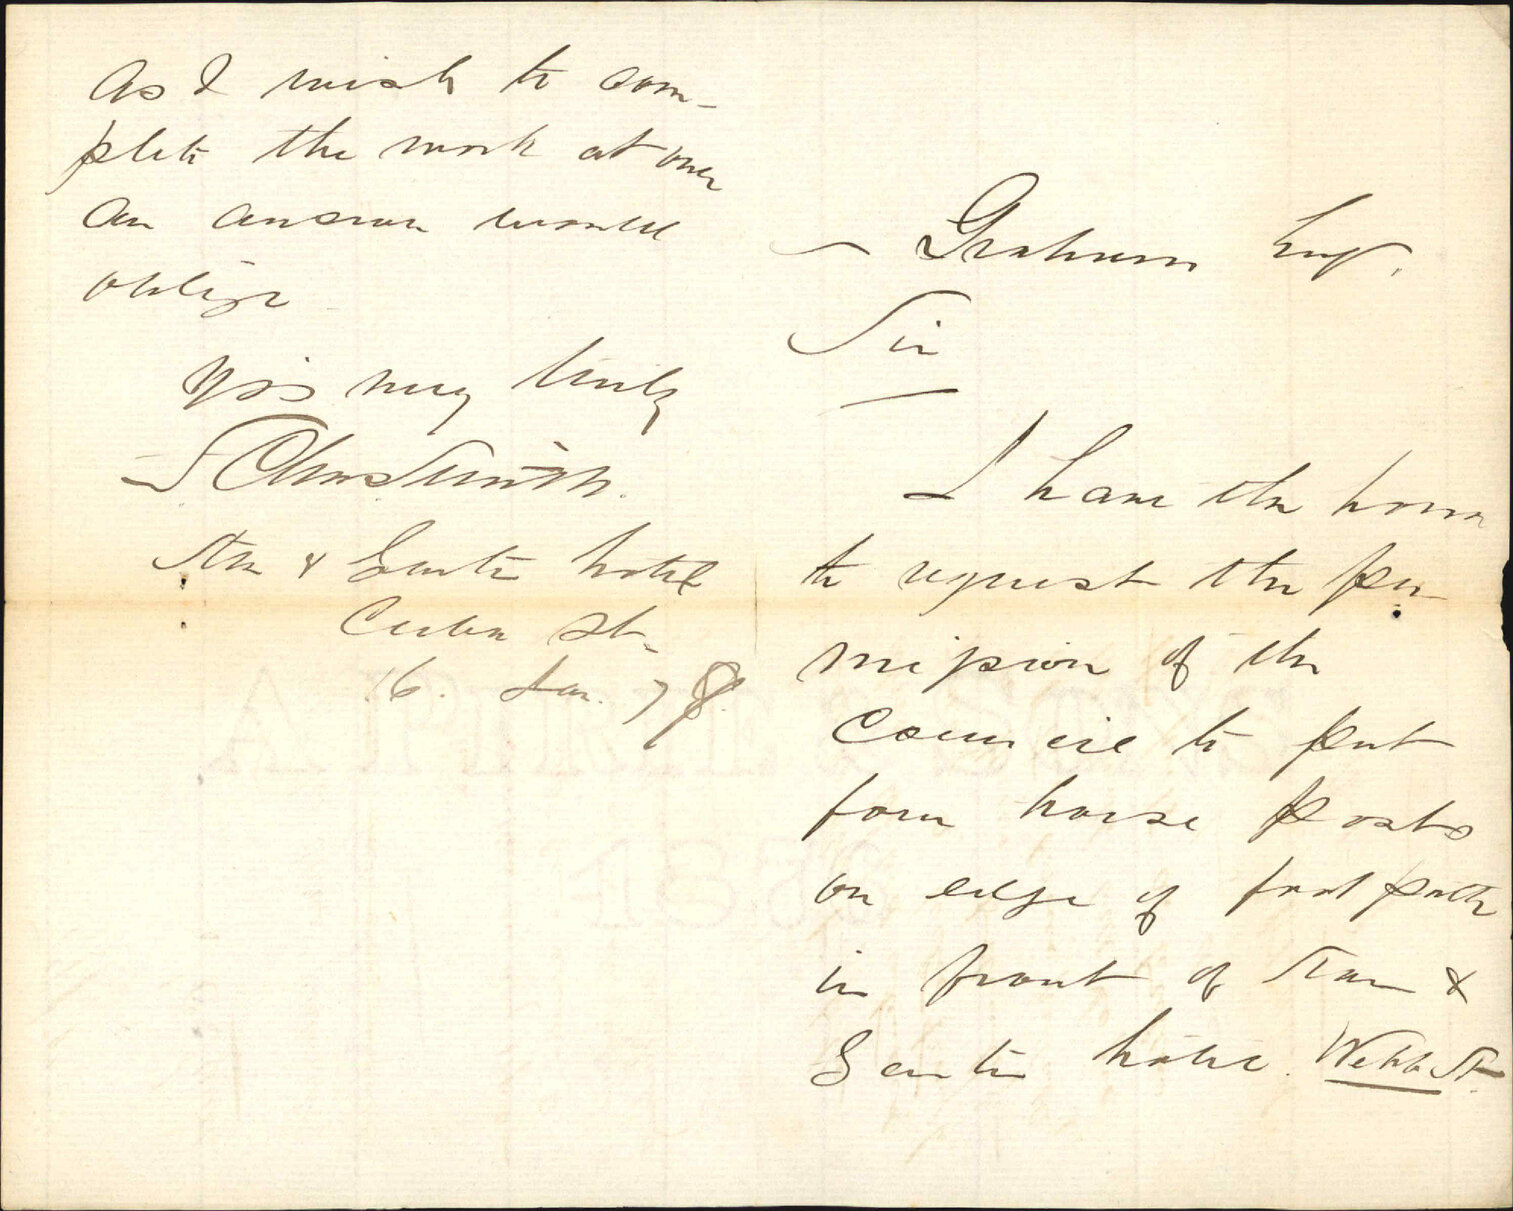 Graham Esq.
Sir
I have the honor
to request the per-
mission of the
Council to put
four horse posts
on edge of foot path
in front of Star &
Garter hotel. Webb St.
As I wish to com-
plete the work at once
an answer would
oblige
Yrs very truly
Smith.
Star & Garter hotel
Cuba St.
16. Jan. 78.